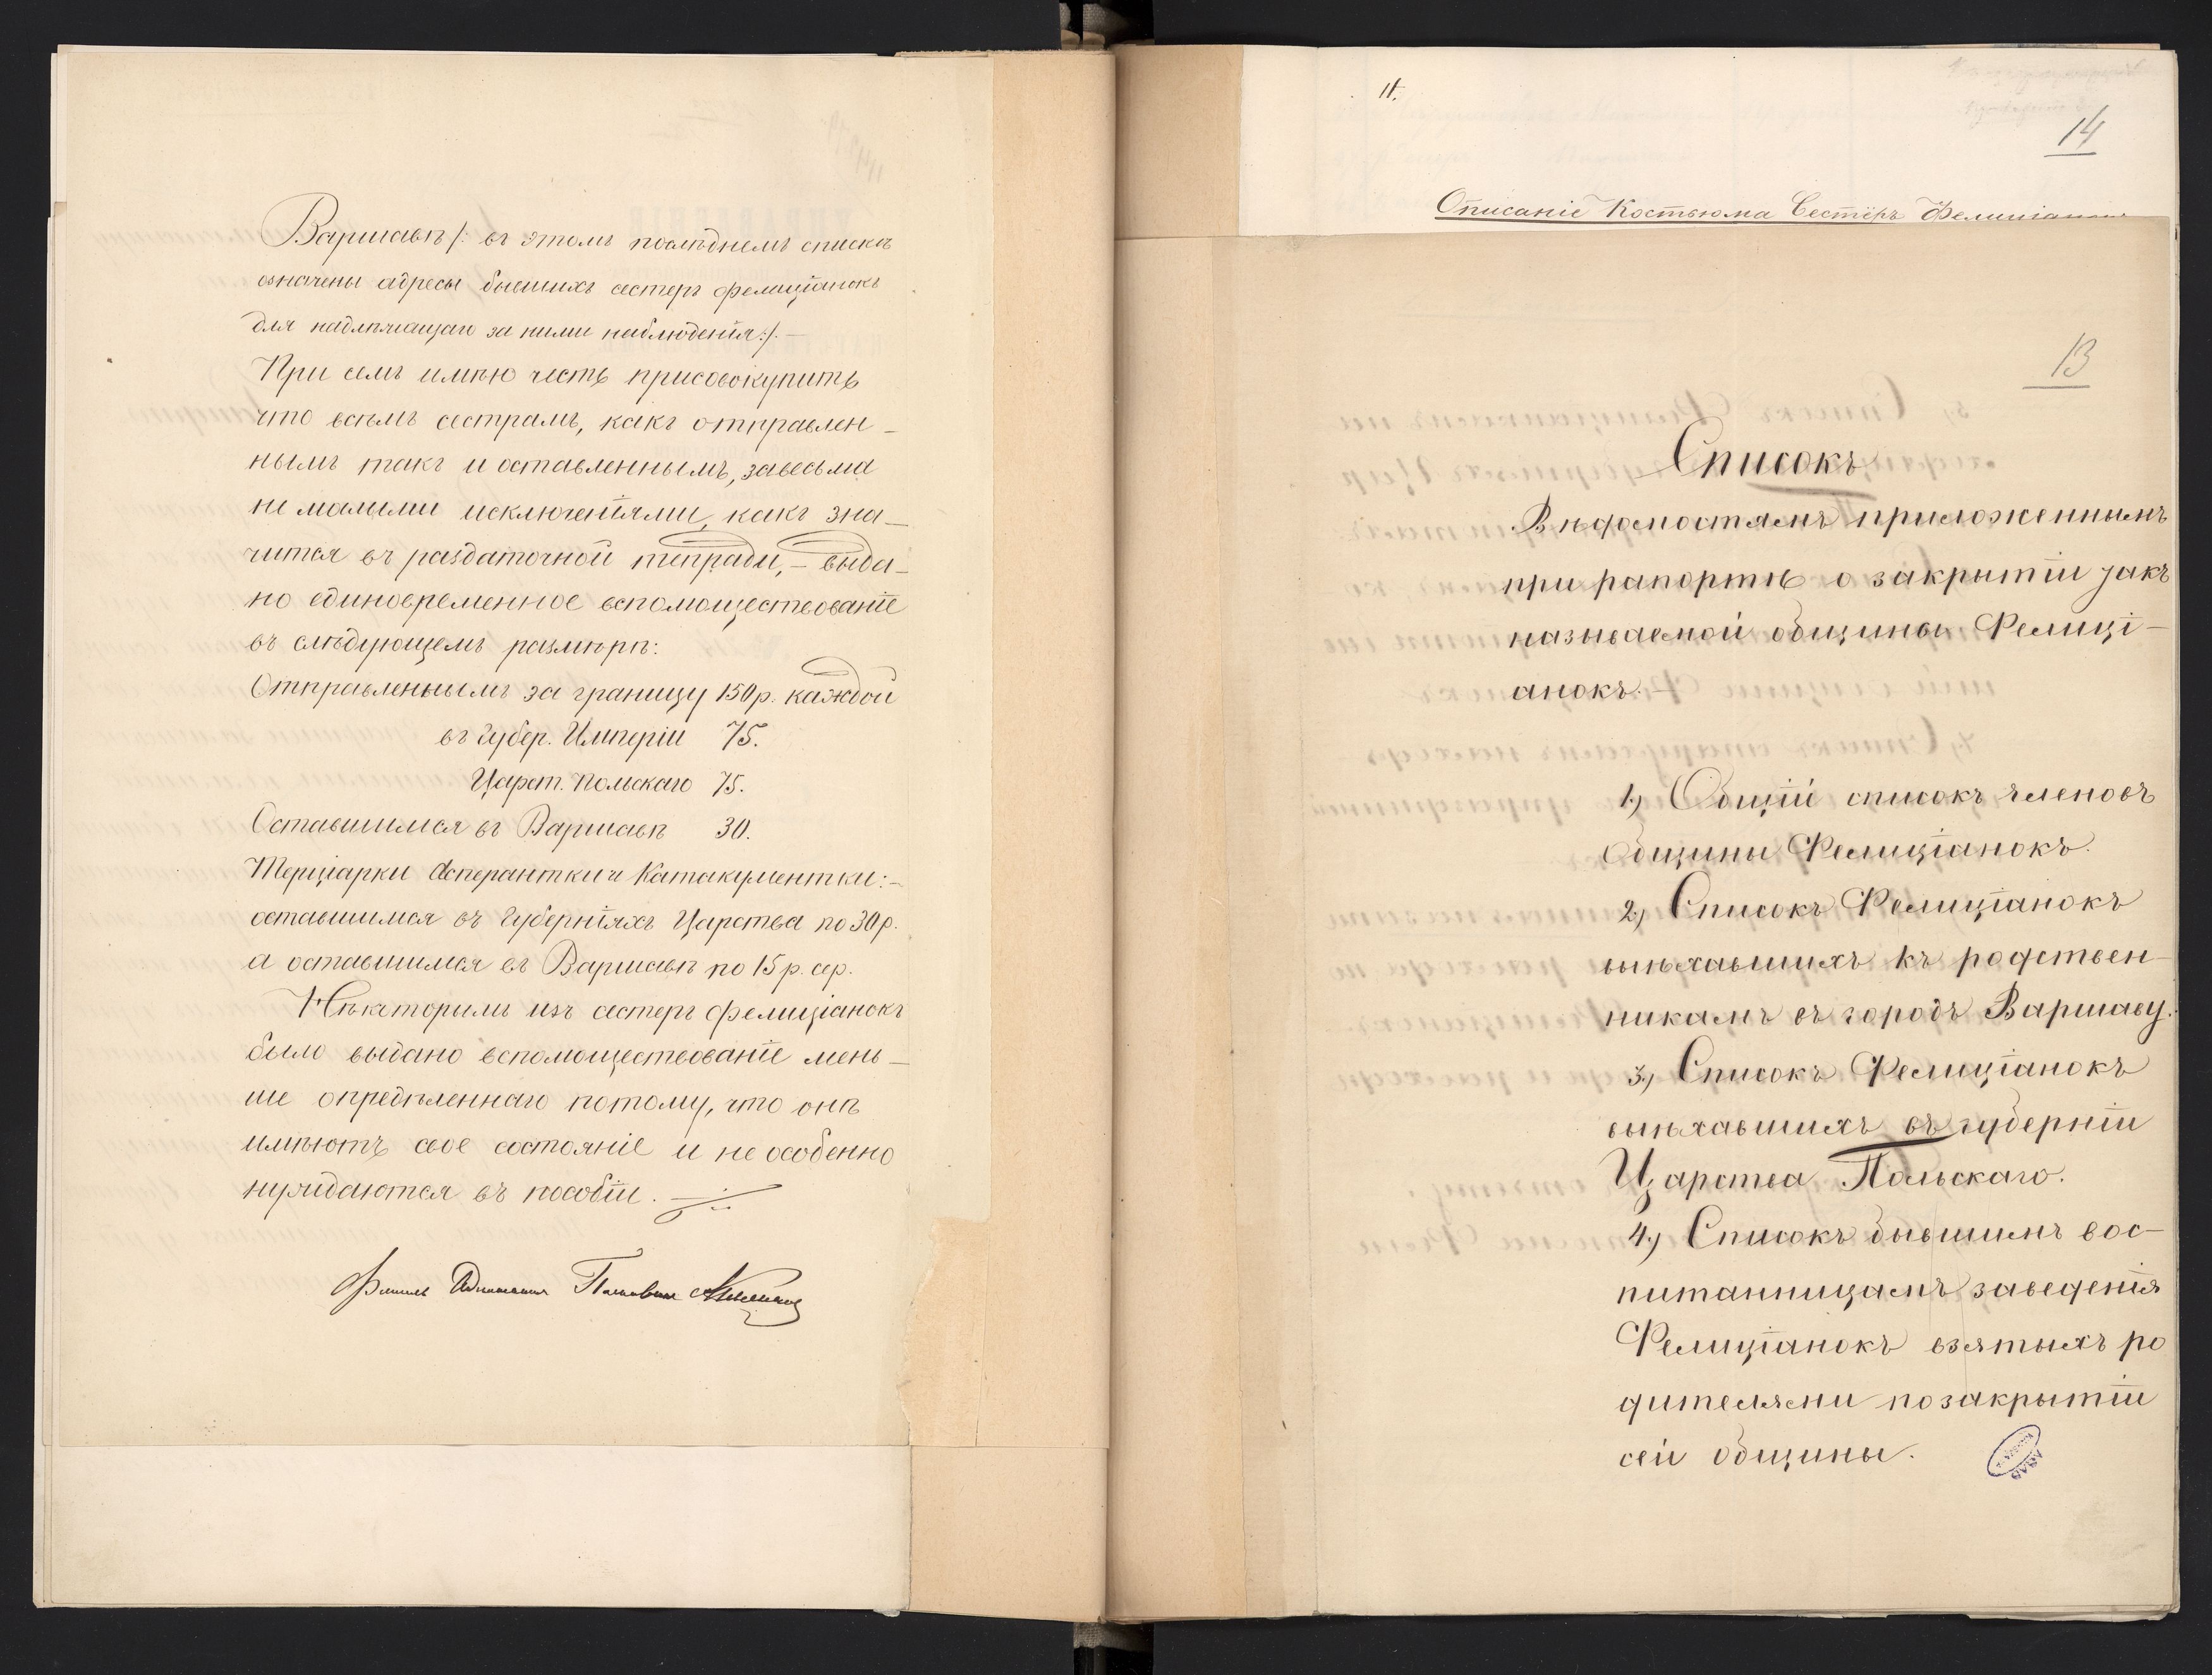 Варшавѣ /: въ этомъ послѣднемъ спискѣ
означены адресы бывшихъ сестеръ фелиціанокъ
для надлежащаго за ними наблюденія :/. —
При семъ имѣю честь присовокупить
что всѣмъ сестрамъ, какъ отправлен-
нымъ такъ и оставленнымъ, завесьма
не малыми исключеніями, какъ зна-
чится въ раздаточной тетради, — выда-
но единовременное вспомоществованіе
въ слѣдующемъ размѣрѣ:
Отправленнымъ за границу 150 р. каждой
въ Губер. Имперіи 75.
Царст. Польскаго 75.
Оставшимся въ Варшавѣ 30.
Терціарки Асперантки и Катакументки: —
оставшимся въ Губерніяхъ Царства по 30 р.
а оставшимся въ Варшавѣ по 15 р. сер.
Нѣкоторымъ изъ сестеръ фелиціанокъ
было выдано вспомоществованіе мень-
ше опредѣленнаго потому, что онѣ
имѣютъ свое состояніе и не особенно
нуждаются въ пособіи. —
14.
14
Описаніе Костюма Сестёръ Фелиціанокъ
13
Списокъ
Вѣдомостямъ приложеннымъ
при рапортѣ о закрытіи такъ
называемой общины Фелиці-
анокъ. —
1.) Общій списокъ членовъ
Общины Фелиціанокъ.
2.) Списокъ Фелиціанокъ
выѣхавшихъ къ родствен-
никамъ въ городъ Варшаву.
3.) Списокъ Фелиціанокъ
выѣхавшихъ въ губерніи
Царства Польскаго.
4.) Списокъ бывшимъ вос-
питанницамъ заведенія
Фелиціанокъ взятыхъ ро
дителями по закрытіи
сей общины.